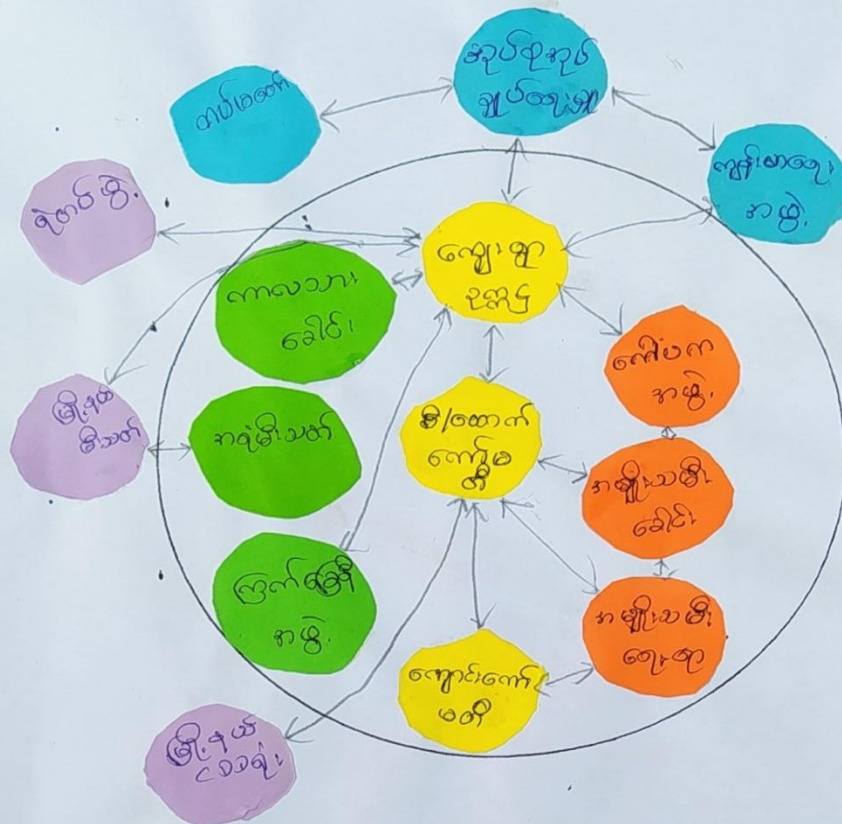 အုပ်စုအုပ်
ချုပ်ရေးမှူး
တပ်မတော်
ကျန်းမာရေး
အဖွဲ့
ရဲတပ်ဖွဲ့
ကျေးရွာ
ဥက္ကဋ္ဌ
ကာလသား
ခေါင်း
ကော်ပတ
အဖွဲ့
မြို့နယ်
မီးသတ်
အရံမီးသတ်
စီ/ထောက်
ကော်မ
တီ
အမျိုးသမီး
ခေါင်း
ကြက်ခြေနီ
အဖွဲ့
အမျိုးသမီး
ရေးရာ
ကျောင်းကော်
မတီ
မြို့နယ်